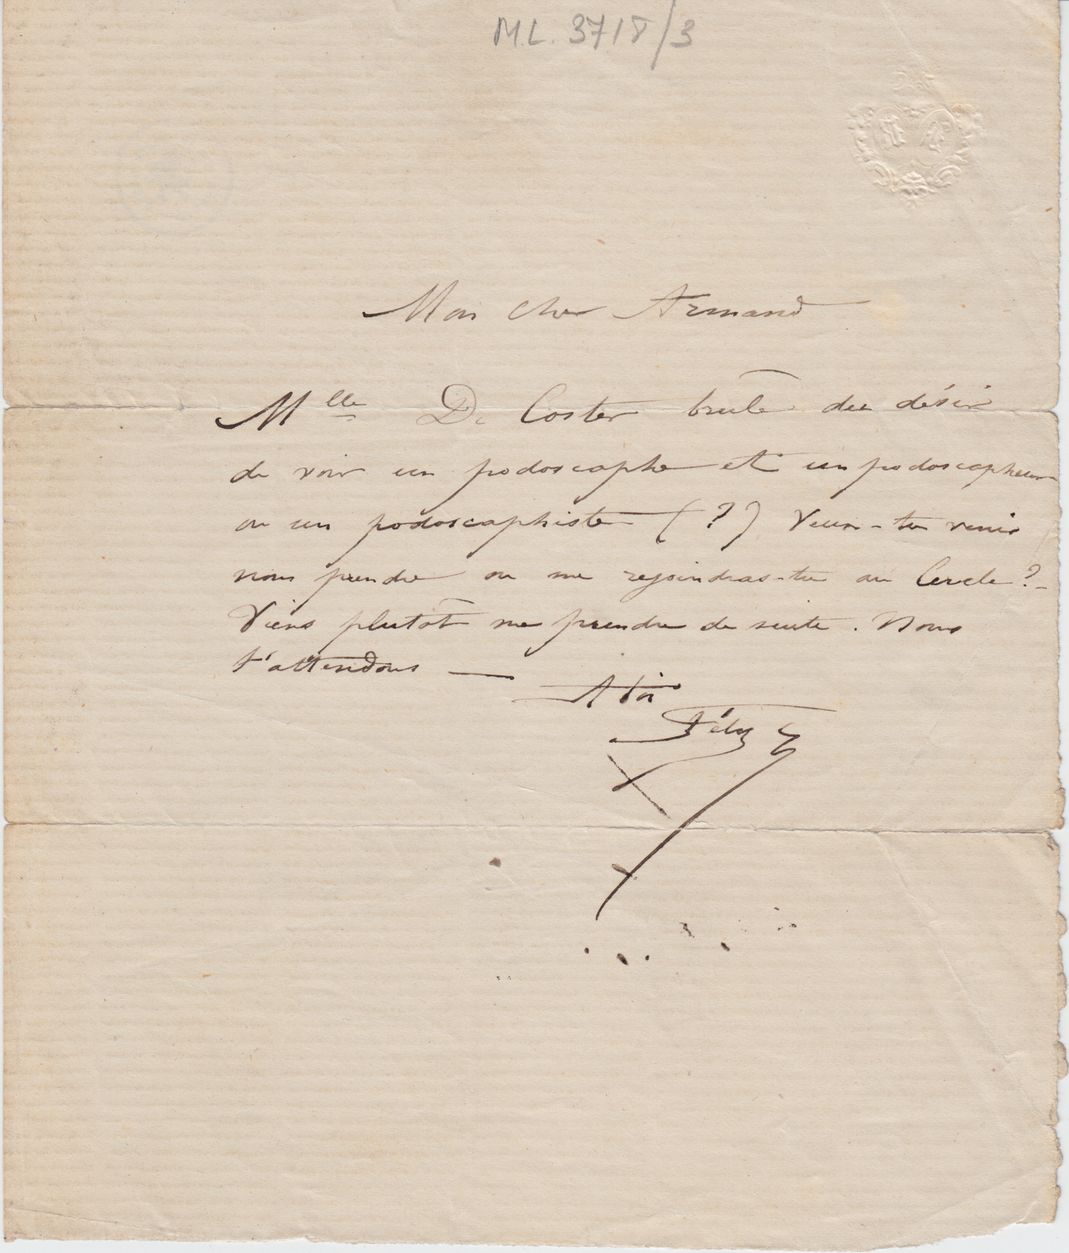 M.L. 3718/3
Mon cher Armand
Mlle De Coster brûle du désir
de voir un podoscaphe et un podoscapheur
ou un podoscaphiste (?) Veux-tu venir
nous prendre ou me rejoindras-tu au Cercle ? -
Viens plutôt me prendre de suite. Nous
t'attendons —
A toi
Fély